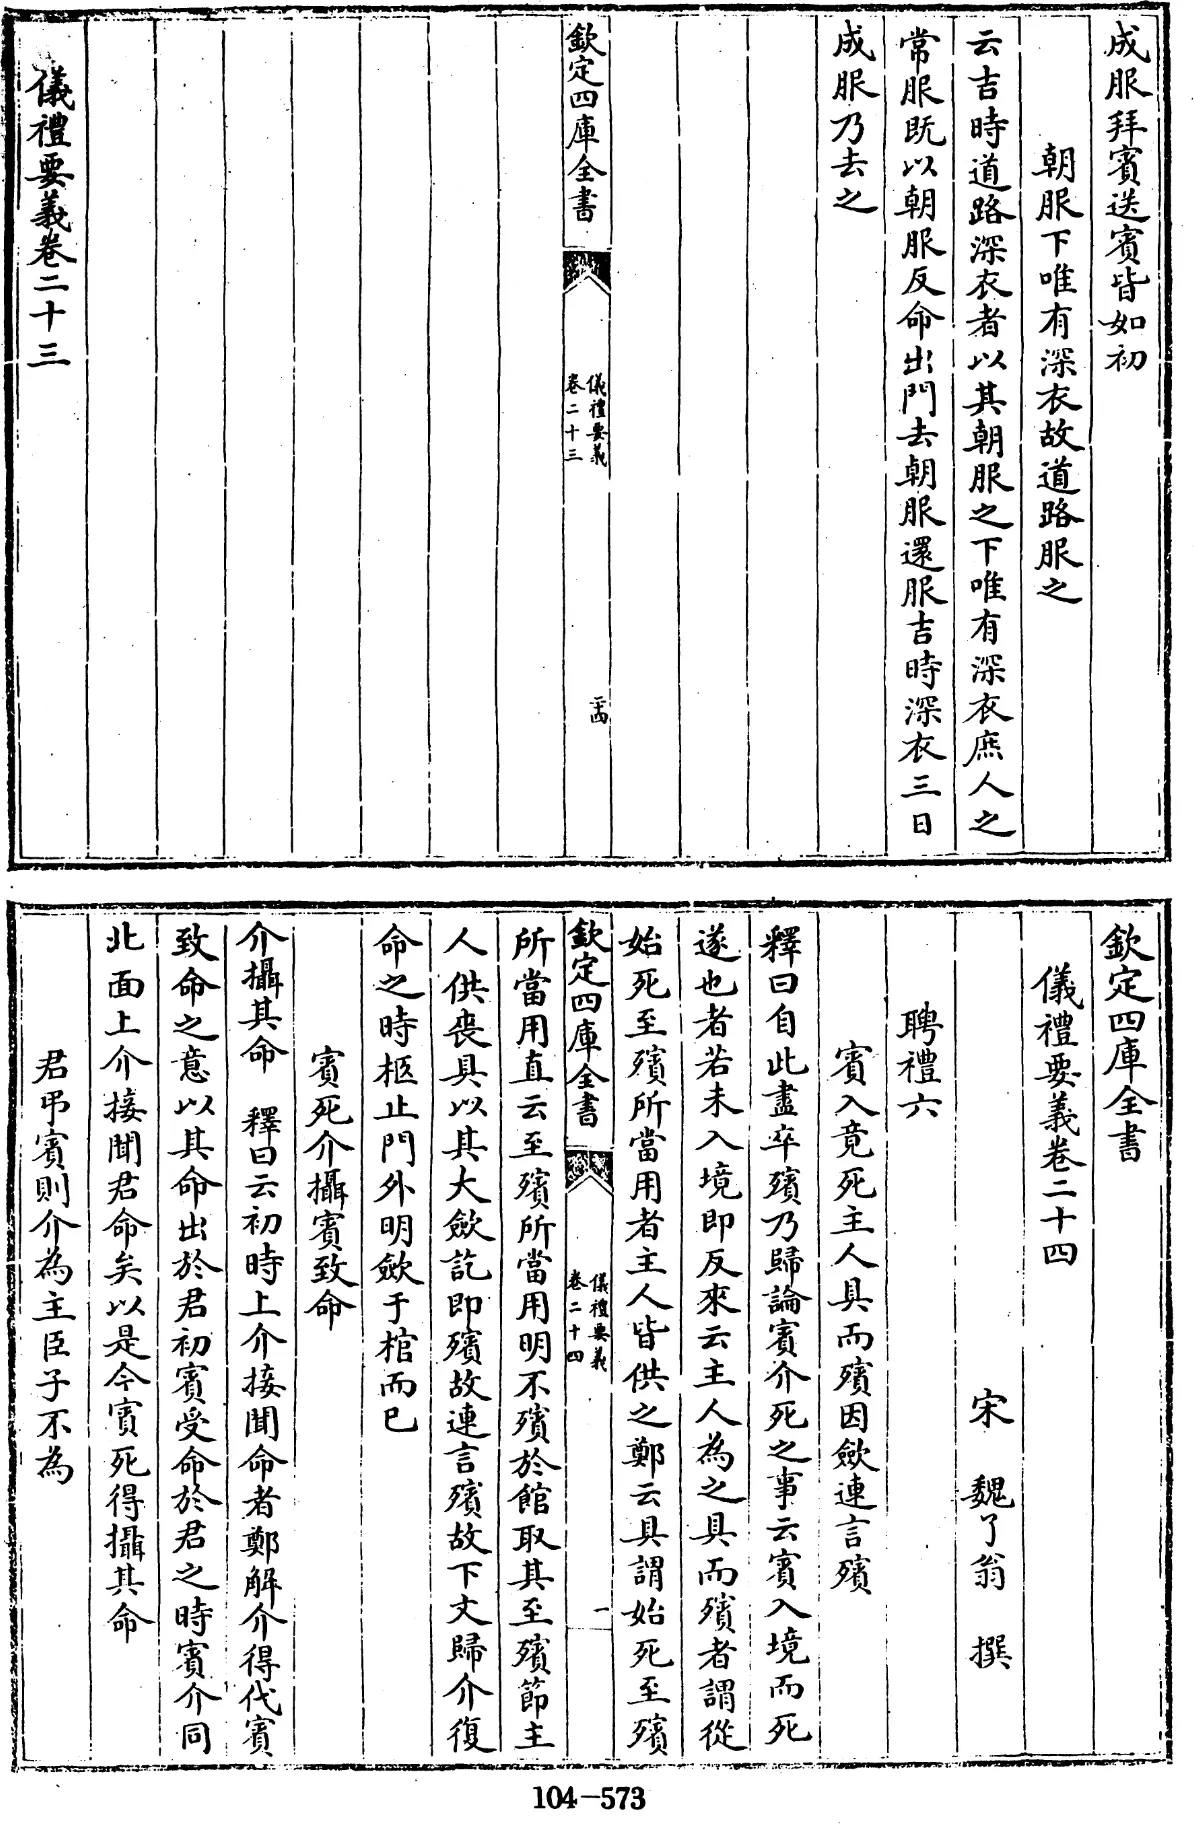 成服拜賓送賓皆如初
朝服下唯有深衣故道路服之
云吉時道路深衣者以其朝服之下唯有深衣庶人之
常服既以朝服反命出門去朝服還服吉時深衣三日
成服乃去之
欽定四庫全書
儀禮要義
卷二十三
二十四
儀禮要義卷二十三
欽定四庫全書
儀禮要義卷二十四
宋 魏了翁 撰
聘禮六
賓入竟死主人具而殯因歛連言殯
釋曰自此盡卒殯乃歸論賓介死之事云賓入境而死
遂也者若未入境即反來云主人為之具而殯者謂從
始死至殯所當用者主人皆供之鄭云具謂始死至殯
欽定四庫全書
儀禮要義
卷二十四
一
所當用直云至殯所當用明不殯於館取其至殯節主
人供喪具以其大歛訖即殯故連言殯故下文歸介復
命之時柩止門外明歛于棺而已
賓死介攝賓致命
介攝其命 釋曰云初時上介接聞命者鄭解介得代賓
致命之意以其命出於君初賓受命於君之時賓介同
北面上介接聞君命矣以是今賓死得攝其命
君弔賓則介為主臣子不為
104-573